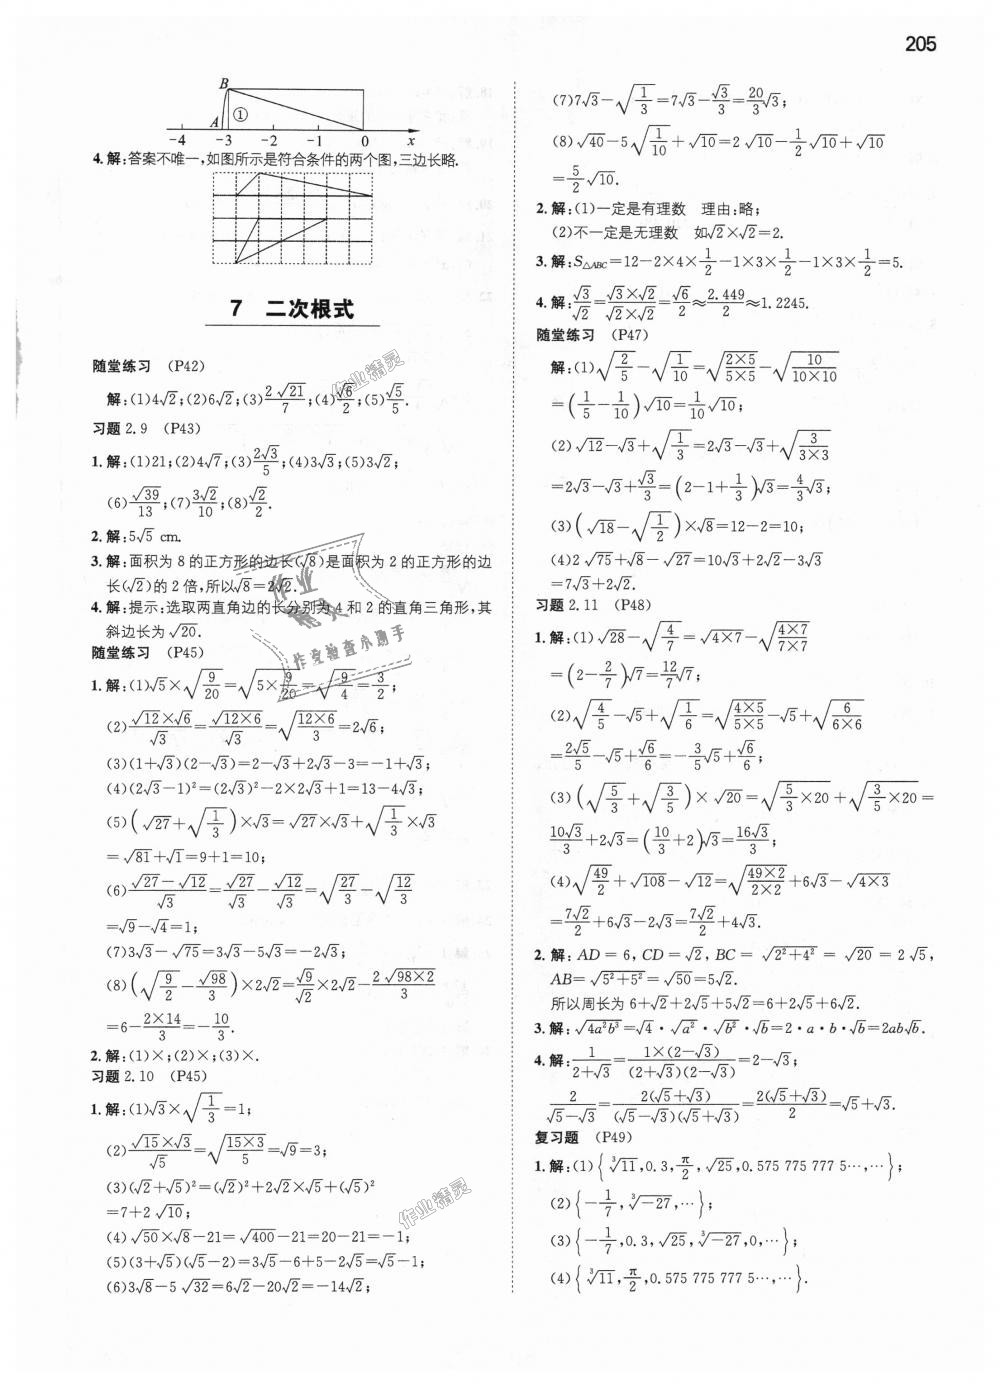 205
B
A ①
-4 -3 -2 -1 0 x
4.解:答案不唯一,如图所示是符合条件的两个图,三边长略.
7 二次根式
随堂练习 (P42)
解:(1)4√2;(2)6√2;(3)2√21/7;(4)√6/2;(5)√5/5.
习题2.9 (P43)
1.解:(1)21;(2)4√7;(3)2√3/5;(4)3√3;(5)3√2;
(6)√39/13;(7)3√2/10;(8)√2/2.
2.解:5√5 cm.
3.解:面积为8的正方形的边长(√8)是面积为2的正方形的边
长(√2)的2倍,所以√8=2√2.
4.解:提示:选取两直角边的长分别为4和2的直角三角形,其
斜边长为√20.
随堂练习 (P45)
1.解:(1)√5×√(9/20)=√(5×9/20)=√(9/4)=3/2;
(2)(√12×√6)/√3=√(12×6)/√3=√((12×6)/3)=2√6;
(3)(1+√3)(2-√3)=2-√3+2√3-3=-1+√3;
(4)(2√3-1)²=(2√3)²-2×2√3+1=13-4√3;
(5)(√27+√(1/3))×√3=√27×√3+√(1/3)×√3
=√81+√1=9+1=10;
(6)(√27-√12)/√3=√27/√3-√12/√3=√(27/3)-√(12/3)
=√9-√4=1;
(7)3√3-√75=3√3-5√3=-2√3;
(8)(√(9/2)-√98/3)×2√2=√9/√2×2√2-2√(98×2)/3
=6-(2×14)/3=-10/3.
2.解:(1)×;(2)×;(3)×.
习题2.10 (P45)
1.解:(1)√3×√(1/3)=1;
(2)(√15×√3)/√5=√((15×3)/5)=√9=3;
(3)(√2+√5)²=(√2)²+2√2×√5+(√5)²
=7+2√10;
(4)√50×√8-21=√400-21=20-21=-1;
(5)(3+√5)(√5-2)=3√5-6+5-2√5=√5-1;
(6)3√8-5√32=6√2-20√2=-14√2;
(7)7√3-√(1/3)=7√3-√3/3=20/3√3;
(8)√40-5√(1/10)+√10=2√10-1/2√10+√10
=5/2√10.
2.解:(1)一定是有理数 理由:略;
(2)不一定是无理数 如√2×√2=2.
3.解:S△ABC=12-2×4×1/2-1×3×1/2-1×3×1/2=5.
4.解:√3/√2=(√3×√2)/(√2×√2)=√6/2≈2.449/2≈1.2245.
随堂练习 (P47)
解:(1)√(2/5)-√(1/10)=√((2×5)/(5×5))-√(10/(10×10))
=(1/5-1/10)√10=1/10√10;
(2)√12-√3+√(1/3)=2√3-√3+√(3/(3×3))
=2√3-√3+√3/3=(2-1+1/3)√3=4/3√3;
(3)(√18-√(1/2))×√8=12-2=10;
(4)2√75+√8-√27=10√3+2√2-3√3
=7√3+2√2.
习题2.11 (P48)
1.解:(1)√28-√(4/7)=√(4×7)-√((4×7)/(7×7))
=(2-2/7)√7=12/7√7;
(2)√(4/5)-√5+√(1/6)=√((4×5)/(5×5))-√5+√(6/(6×6))
=2√5/5-√5+√6/6=-3/5√5+√6/6;
(3)(√(5/3)+√(3/5))×√20=√(5/3×20)+√(3/5×20)=
10√3/3+2√3=(10/3+2)√3=16√3/3;
(4)√(49/2)+√108-√12=√((49×2)/(2×2))+6√3-√(4×3)
=7√2/2+6√3-2√3=7√2/2+4√3.
2.解:AD=6,CD=√2,BC=√(2²+4²)=√20=2√5,
AB=√(5²+5²)=√50=5√2.
所以周长为6+√2+2√5+5√2=6+2√5+6√2.
3.解:√(4a²b³)=√4·√a²·√b²·√b=2·a·b·√b=2ab√b.
4.解:1/(2+√3)=(1×(2-√3))/((2+√3)(2-√3))=2-√3;
2/(√5-√3)=2(√5+√3)/((√5-√3)(√5+√3))=2(√5+√3)/2=√5+√3.
复习题 (P49)
1.解:(1){³√11,0.3,π/2,√25,0.575 775 777 5…,…};
(2){-1/7,³√-27,…};
(3){-1/7,0.3,√25,³√-27,0,…};
(4){³√11,π/2,0.575 775 777 5…,…}.
作业精灵
作业检查小助手
作业精灵